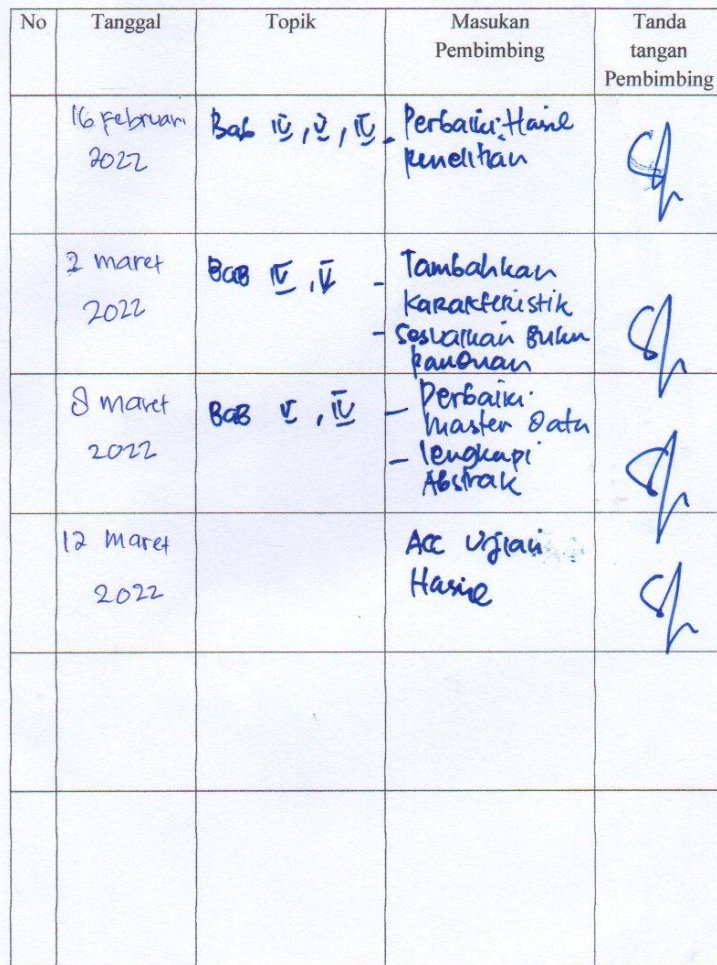 No Tanggal Topik Masukan Pembimbing Tanda tangan Pembimbing
16 Februari 2022
Bab IV, V, IV
- Perbaiki Hasil
penelitian
2 maret
2022
BAB IV, V
- Tambahkan
karakteristik
- Sesuaikan Buku
panduan
8 maret
2022
BAB V, IV
- Perbaiki
Master Data
- lengkapi
Abstrak
12 Maret
2022
ACC Ujian
Hasil